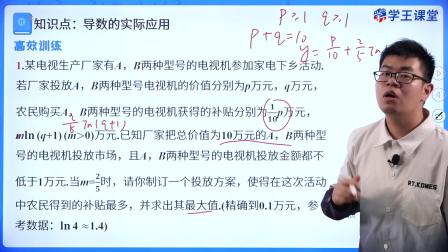 知识点：导数的实际应用
学王课堂
高效训练
P≥1 q≥1
P+q=10
y=P/10+2/5 ln
1.某电视生产厂家有A，B两种型号的电视机参加家电下乡活动.
若厂家投放A，B两种型号的电视机的价值分别为p万元，q万元，
农民购买A，B两种型号的电视机获得的补贴分别为1/10p万元，
2/5 ln(q+1)
mln(q+1)(m>0)万元.已知厂家把总价值为10万元的A，B两种型
号的电视机投放市场，且A，B两种型号的电视机投放金额都不
低于1万元.当m=2/5时，请你制订一个投放方案，使得在这次活动
中农民得到的补贴最多，并求出其最大值.(精确到0.1万元，参
考数据：ln 4≈1.4)